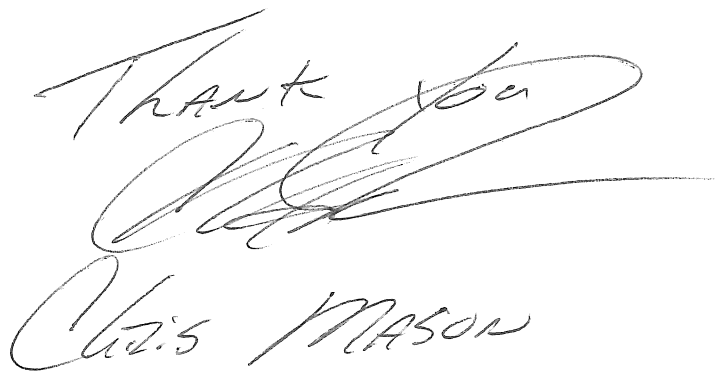 Thank You
Chris Mason